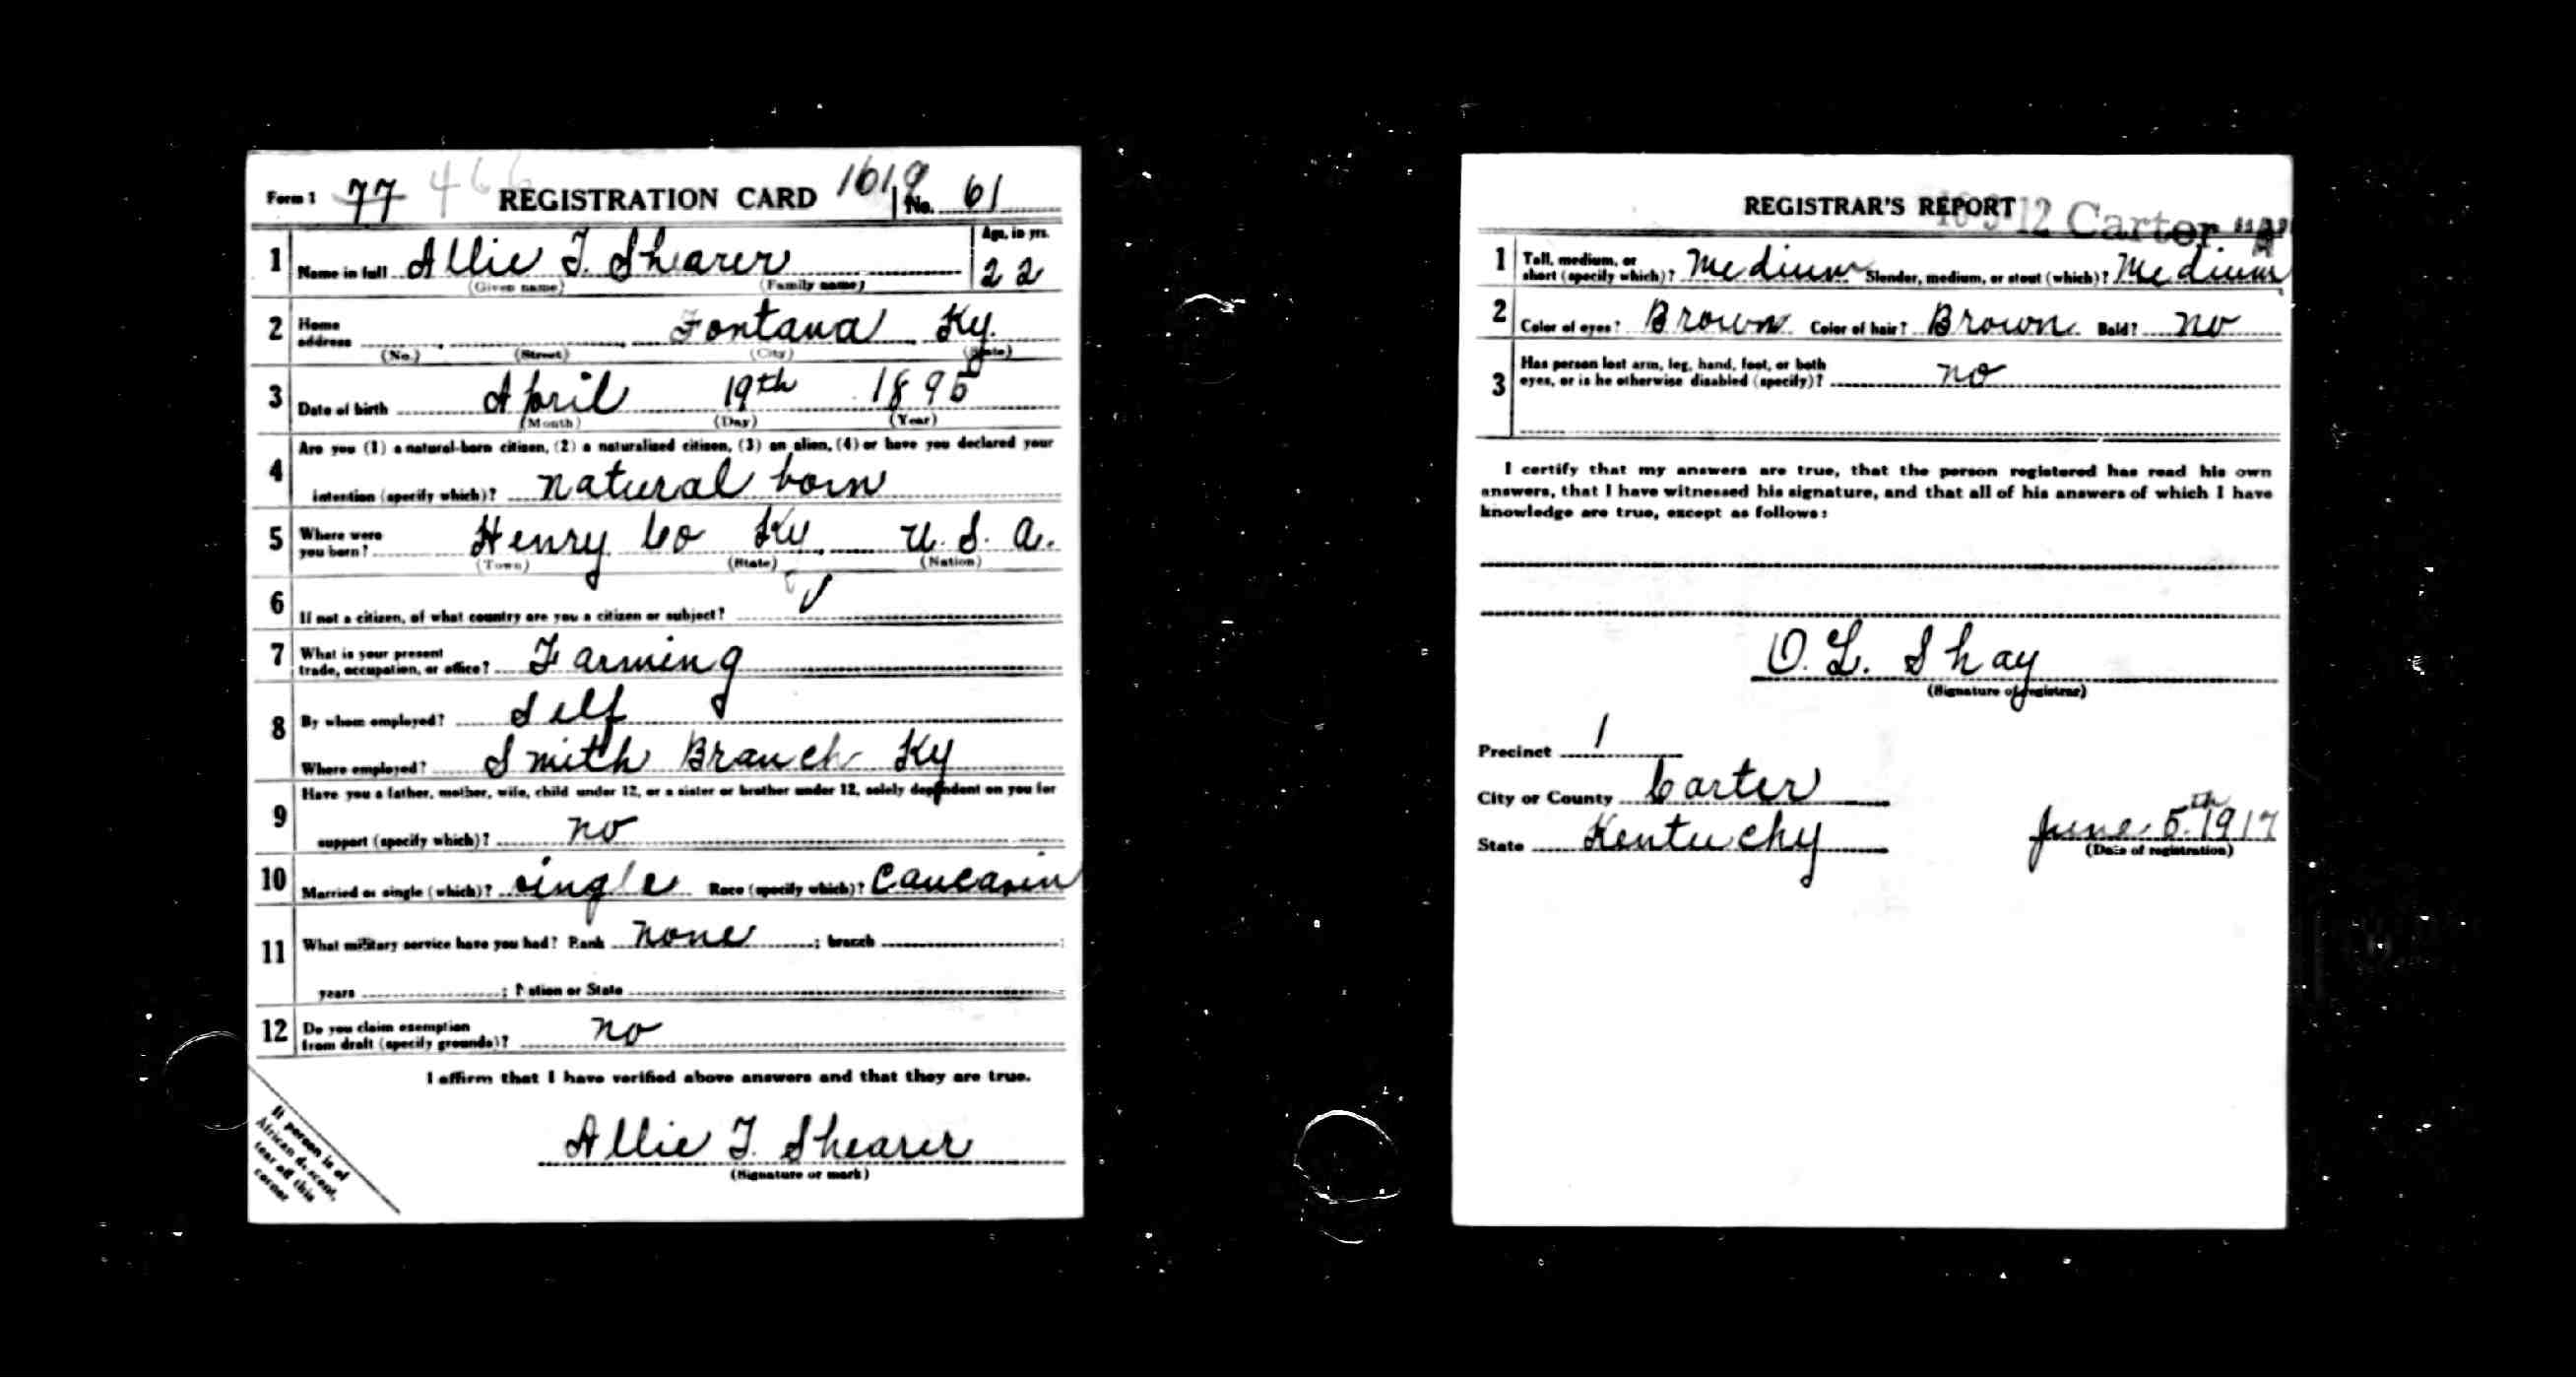 Form 1 77 466 REGISTRATION CARD 1619 No. 61
1 Name in full Allie T. Sharer Age, in yrs. 22
(Given name) (Family name)
2 Home address Fontana Ky.
(No.) (Street) (City) (State)
3 Date of birth April 19th 1895
(Month) (Day) (Year)
4 Are you (1) a natural-born citizen, (2) a naturalized citizen, (3) an alien, (4) or have you declared your
intention (specify which)? natural born
5 Where were you born? Henry Co Ky U. S. A.
(Town) (State) (Nation)
6 If not a citizen, of what country are you a citizen or subject?
7 What is your present trade, occupation, or office? Farming
8 By whom employed? Self
Where employed? Smith Branch Ky
9 Have you a father, mother, wife, child under 12, or a sister or brother under 12, solely dependent on you for
support (specify which)? no
10 Married or single (which)? single Race (specify which)? Caucasin
11 What military service have you had? Rank none ; branch ;
years ; Nation or State
12 Do you claim exemption from draft (specify grounds)? no
I affirm that I have verified above answers and that they are true.
Allie T. Shearer
(Signature or mark)
If person is of
African descent,
tear off this
corner
REGISTRAR'S REPORT
Carter
1 Tall, medium, or short (specify which)? Medium Slender, medium, or stout (which)? Medium
2 Color of eyes? Brown Color of hair? Brown Bald? no
3 Has person lost arm, leg, hand, foot, or both
eyes, or is he otherwise disabled (specify)? no
I certify that my answers are true, that the person registered has read his own
answers, that I have witnessed his signature, and that all of his answers of which I have
knowledge are true, except as follows:
O. L. Shay
(Signature of registrar)
Precinct 1
City or County Carter
State Kentuchy June 5.th 1917
(Date of registration)